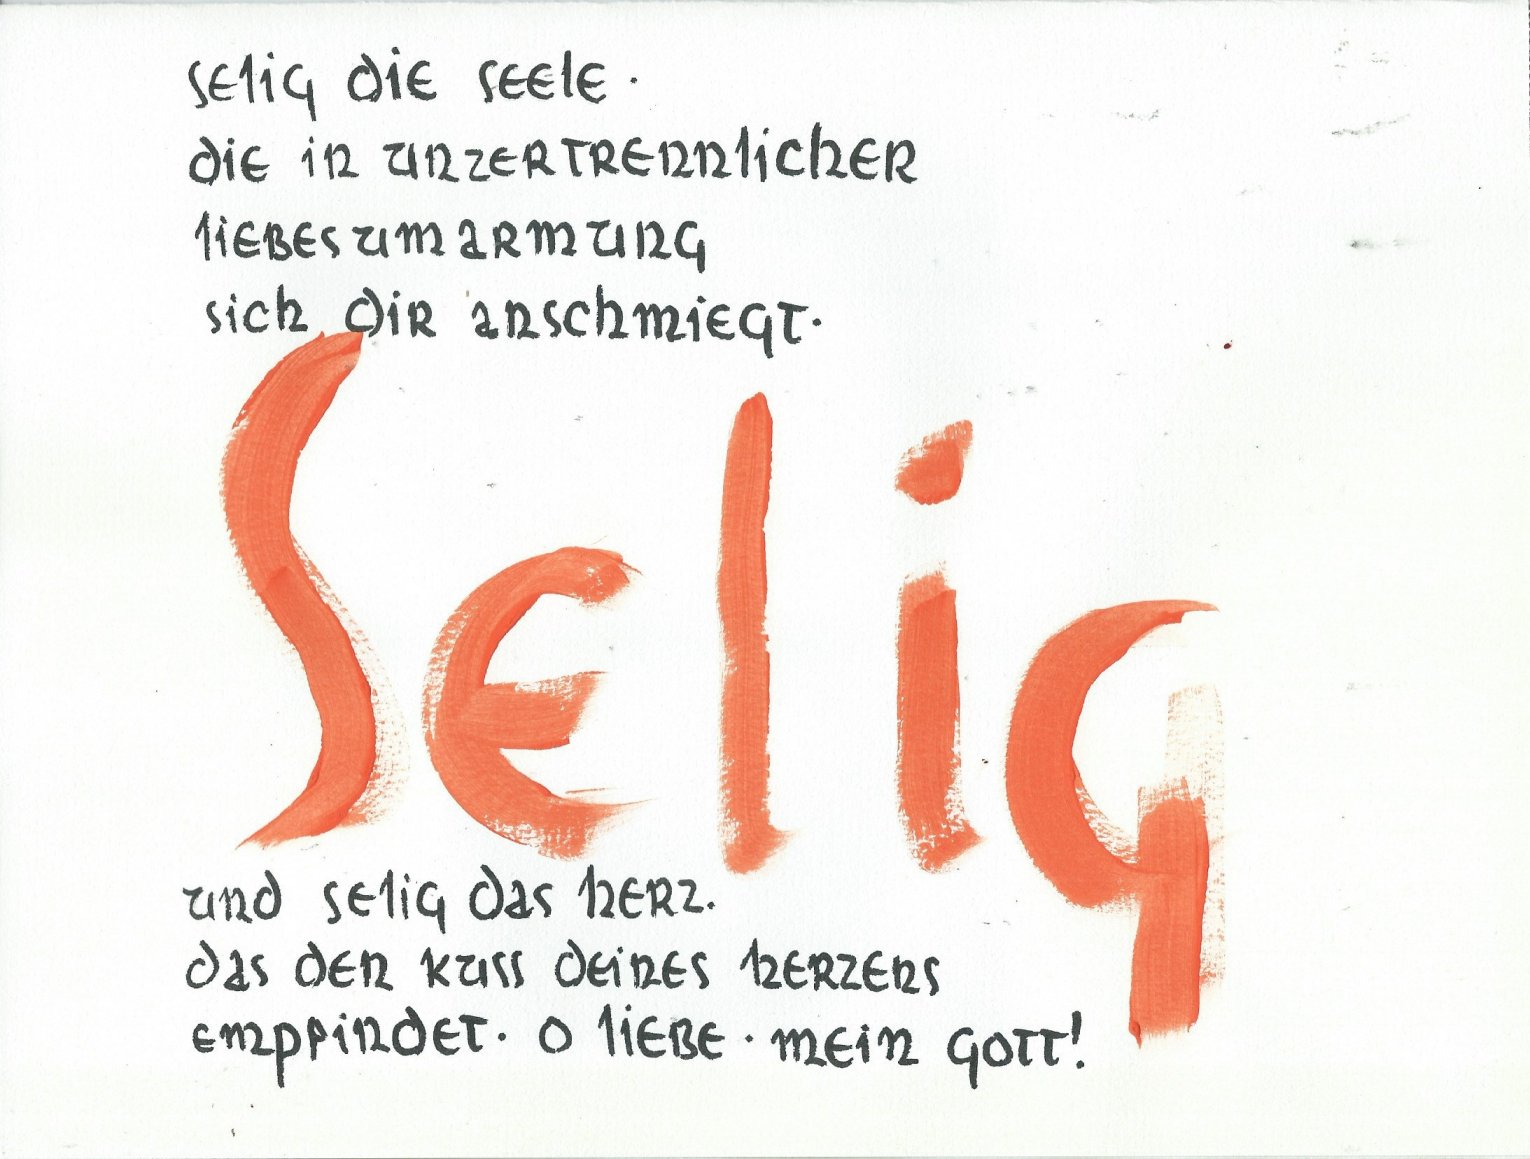 selig die seele ·
die in unzertrennlicher
liebesumarmung
sich dir anschmiegt·
Selig
und selig das herz.
das den kuss deines herzens
empfindet· o liebe · mein gott!